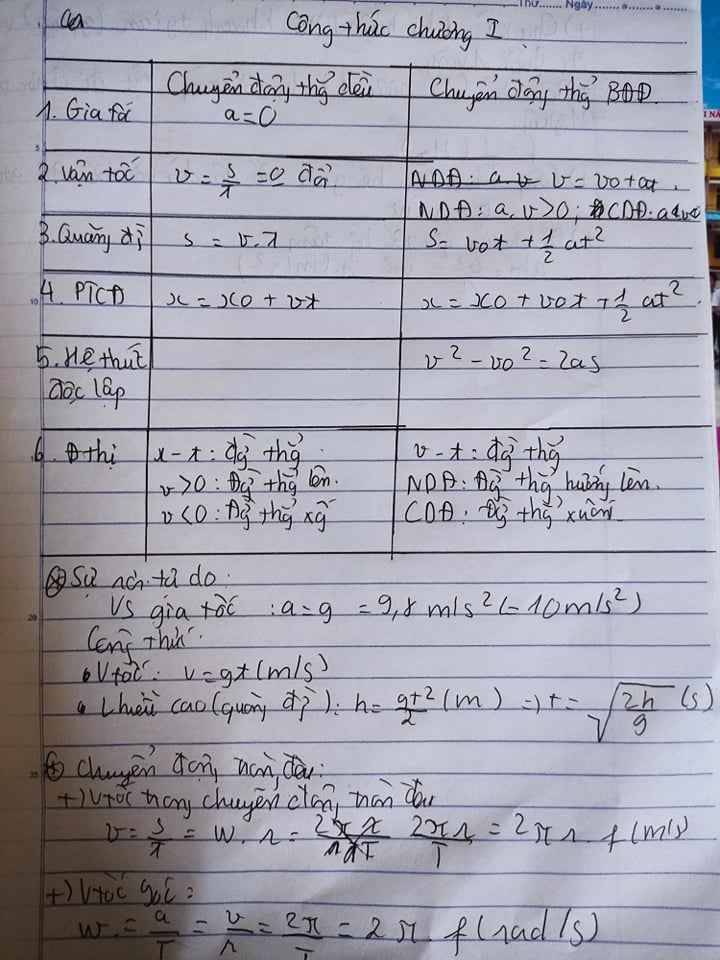 Thứ....... Ngày.......
Công thức chương I
Chuyển động thg̉ đều
Chuyển động thg̉ BĐĐ.
1. Gia tốc
a = 0
2. Vận tốc
v = s/t = 0 đổi
NDĐ: a.v v = vo + at.
NDĐ: a.v>0; CDĐ: a.v<0
3. Quãng đi
s = v.t
S = vot + 1/2 at²
4. PTCĐ
x = xo + vt
x = xo + vot + 1/2 at².
5. Hệ thức
độc lập
v² - vo² = 2as
6. Đ thị
x - t: đg̀ thg̉
v - t: đg̀ thg̉
v>0: Đg̀ thg̉ lên.
NDĐ: Đg̀ thg̉ hướng lên.
v<0: Đg̀ thg̉ xg̉
CDĐ: Đg̀ thg̉ xuống
Sự rơi tự do:
Vs gia tốc : a = g = 9,8 m/s² (= 10m/s²)
Công thức:
Vtốc: v = gt (m/s)
Chiều cao (quãng đg̀): h = gt²/2 (m) => t = √(2h/g) (s)
Chuyển động tròn đều:
+) Vtốc trong chuyển động tròn đều
v = s/t = w.r = 2πr/T = 2πr.f (m/s)
+) Vtốc góc:
w = a/T = v/r = 2π/T = 2π.f (rad/s)